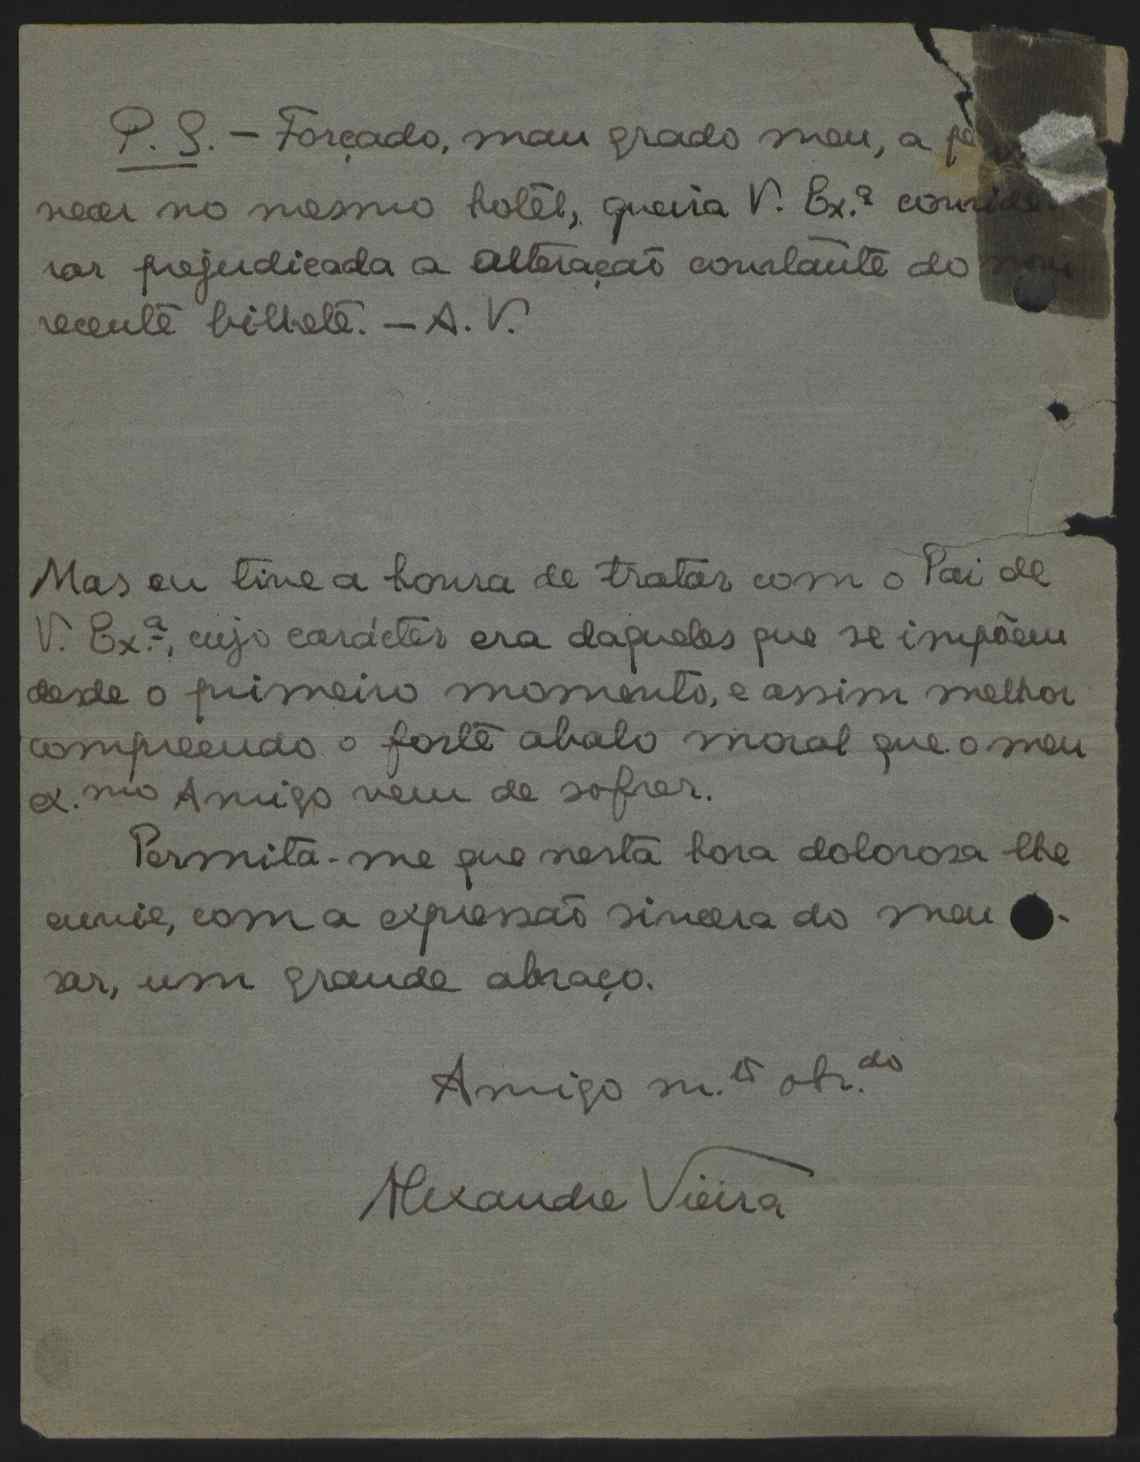 P. S. — Forçado, mau grado meu, a pe
necer no mesmo hotel, queira V. Ex.ª conside
rar prejudicada a alteração constante do meu
recente bilhete. — A. V.
Mas eu tive a honra de tratar com o Pai de
V. Ex.ª, cujo carácter era daqueles que se impõem
desde o primeiro momento, e assim melhor
compreendo o forte abalo moral que o meu
ex.mo Amigo vem de sofrer.
Permita-me que nesta hora dolorosa lhe
envie, com a expressão sincera do meu -
sar, um grande abraço.
Amigo m.to obr.do
Alexandre Vieira